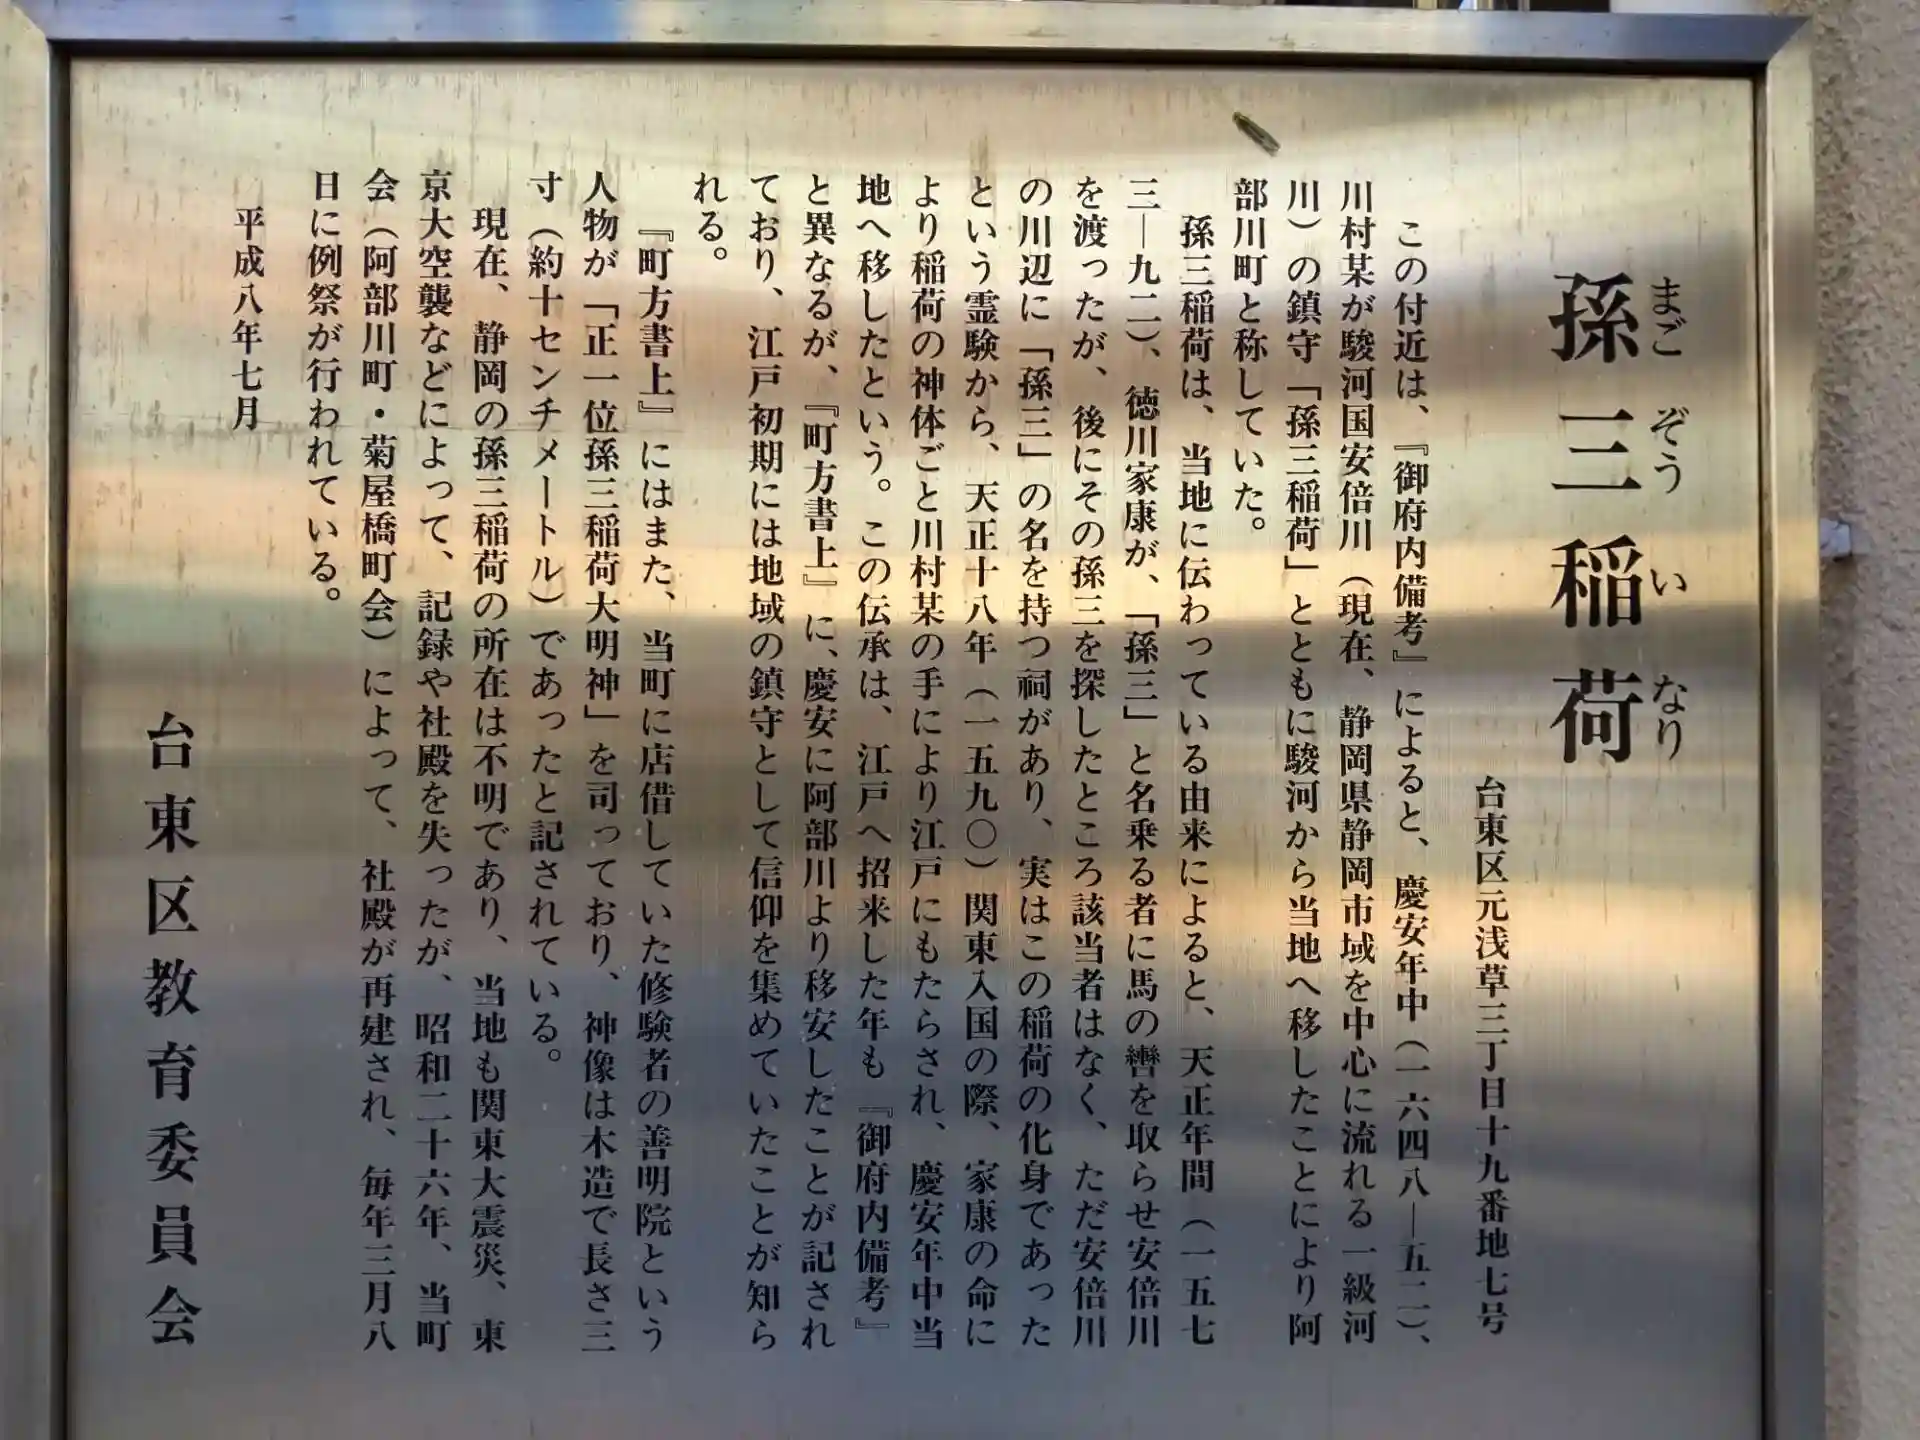 孫三稲荷
まごぞういなり
台東区元浅草三丁目十九番地七号
この付近は、『御府内備考』によると、慶安年中（一六四八―五二）、
川村某が駿河国安倍川（現在、静岡県静岡市域を中心に流れる一級河
川）の鎮守「孫三稲荷」とともに駿河から当地へ移したことにより阿
部川町と称していた。
孫三稲荷は、当地に伝わっている由来によると、天正年間（一五七
三―九二）、徳川家康が、「孫三」と名乗る者に馬の轡を取らせ安倍川
を渡ったが、後にその孫三を探したところ該当者はなく、ただ安倍川
の川辺に「孫三」の名を持つ祠があり、実はこの稲荷の化身であった
という霊験から、天正十八年（一五九〇）関東入国の際、家康の命に
より稲荷の神体ごと川村某の手により江戸にもたらされ、慶安年中当
地へ移したという。この伝承は、江戸へ招来した年も『御府内備考』
と異なるが、『町方書上』に、慶安に阿部川より移安したことが記され
ており、江戸初期には地域の鎮守として信仰を集めていたことが知ら
れる。
『町方書上』にはまた、当町に店借していた修験者の善明院という
人物が「正一位孫三稲荷大明神」を司っており、神像は木造で長さ三
寸（約十センチメートル）であったと記されている。
現在、静岡の孫三稲荷の所在は不明であり、当地も関東大震災、東
京大空襲などによって、記録や社殿を失ったが、昭和二十六年、当町
会（阿部川町・菊屋橋町会）によって、社殿が再建され、毎年三月八
日に例祭が行われている。
平成八年七月
台東区教育委員会